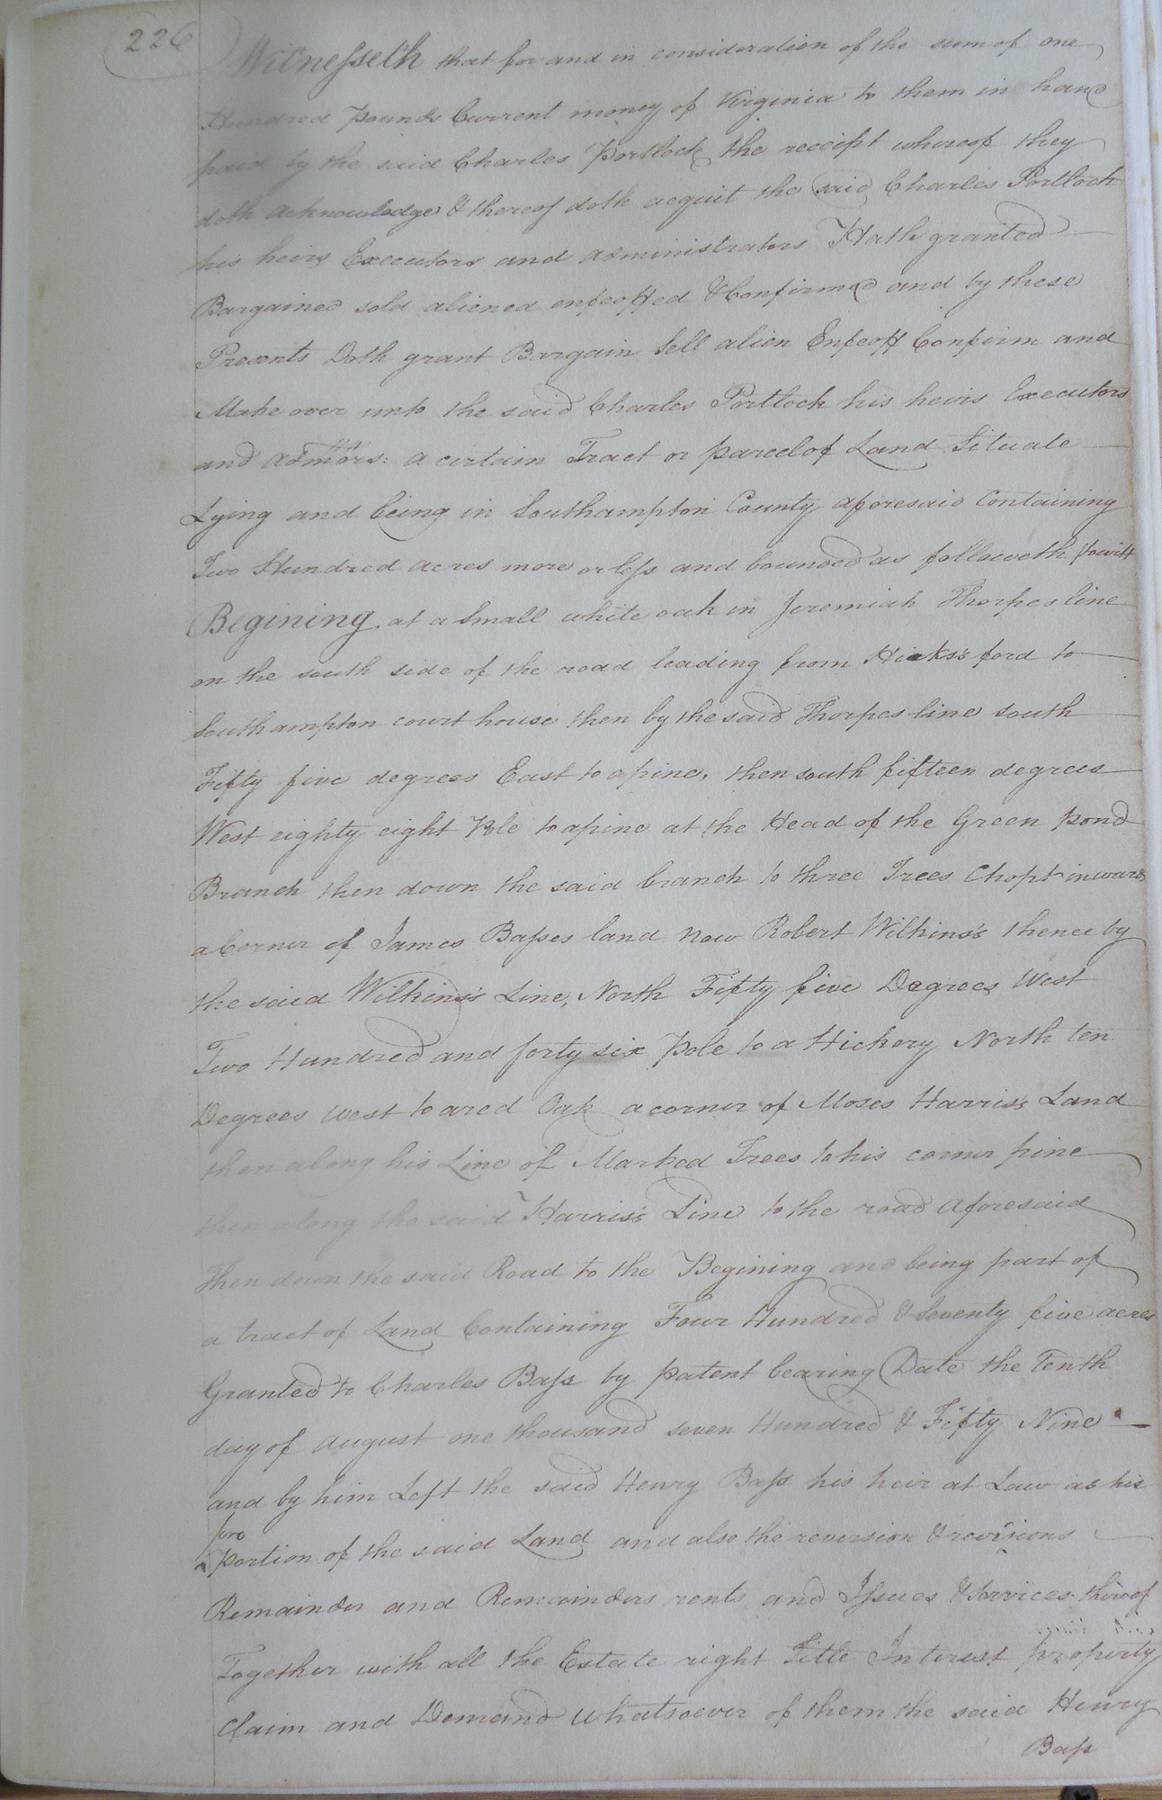 226
Witnesseth that for and in consideration of the sum of one
Hundred Pounds Current money of Virginia to them in hand
paid by the said Charles Portlock, the receipt whereof they
doth acknowledge & thereof doth acquit the said Charles Portlock
his heirs Executors and administrators Hath granted
Bargained sold aliened enfeoffed & Confirmed and by these
Presents Doth grant Bargain Sell alien Enfeoff Confirm and
Make over unto the said Charles Portlock his heirs Executors
and admors: a certain Tract or parcel of Land Situate
Lying and being in Southampton County aforesaid Containing
Two Hundred acres more or less and bounded as followeth towitt
Begining at a Small white oak in Jeremiah Thorpes line
on the south side of the road leading from Hicks's ford to
Southampton court house then by the said Thorpes line south
Fifty five degrees East to a pine, then south fifteen degrees
West eighty eight Pole to a pine at the Head of the Green pond
Branch then down the said branch to three Trees Chopt inwards
a Corner of James Basses land now Robert Wilkins's thence by
the said Wilkins's Line, North Fifty five Degrees West
Two Hundred and forty six Pole to a Hickory North ten
Degrees west to a red Oak a corner of Moses Harris's Land
then along his Line of Marked Trees to his corner pine
then along the said Harris's Line to the road aforesaid
Then down the said Road to the Begining and being part of
a tract of Land Containing Four Hundred & Seventy five acres
Granted to Charles Bass by patent bearing Date the Tenth
day of August one thousand seven Hundred & Fifty Nine
and by him Left the said Henry Bass his heir at Law as his
pro
portion of the said Land and also the reversion & revisions
Remainder and Remainders rents and Issues & Services thereof
Together with all the Estate right Title Interest property
Claim and Demand whatsoever of them the said Henry
Bass